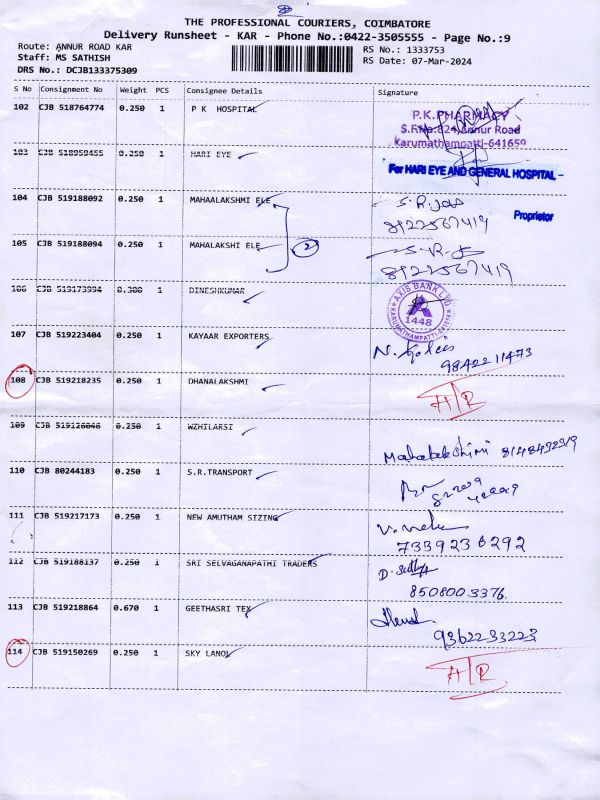 THE PROFESSIONAL COURIERS, COIMBATORE
Delivery Runsheet - KAR - Phone No.:0422-3505555 - Page No.:9
Route: ANNUR ROAD KAR
RS No.: 1333753
Staff: MS SATHISH
RS Date: 07-Mar-2024
DRS No.: DCJB133375309
S No Consignment No Weight PCS Consignee Details Signature
102 CJB 518764774 0.250 1 P K HOSPITAL
P.K.PHARMACY
S.F.No.824, Annur Road
Karumathampatti-641659
103 CJB 518959455 0.250 1 HARI EYE
For HARI EYE AND GENERAL HOSPITAL
Proprietor
104 CJB 519188092 0.250 1 MAHAALAKSHMI ELE
S.R.Jas
8122567419
105 CJB 519188094 0.250 1 MAHALAKSHI ELE
2
8122567419
106 CJB 519173994 0.300 1 DINESHKUMAR
AXIS BANK LTD
1448
KARUMATHAMPATTI-641659
107 CJB 519223404 0.250 1 KAYAAR EXPORTERS
9842211473
108 CJB 519218235 0.250 1 DHANALAKSHMI
H/R
109 CJB 519126046 0.250 1 WZHILARSI
110 CJB 80244183 0.250 1 S.R.TRANSPORT
111 CJB 519217173 0.250 1 NEW AMUTHAM SIZING
7339236292
112 CJB 519188137 0.250 1 SRI SELVAGANAPATHI TRADERS
8508003376
113 CJB 519218864 0.670 1 GEETHASRI TEX
9362233223
114 CJB 519150269 0.250 1 SKY LANOI
H/R